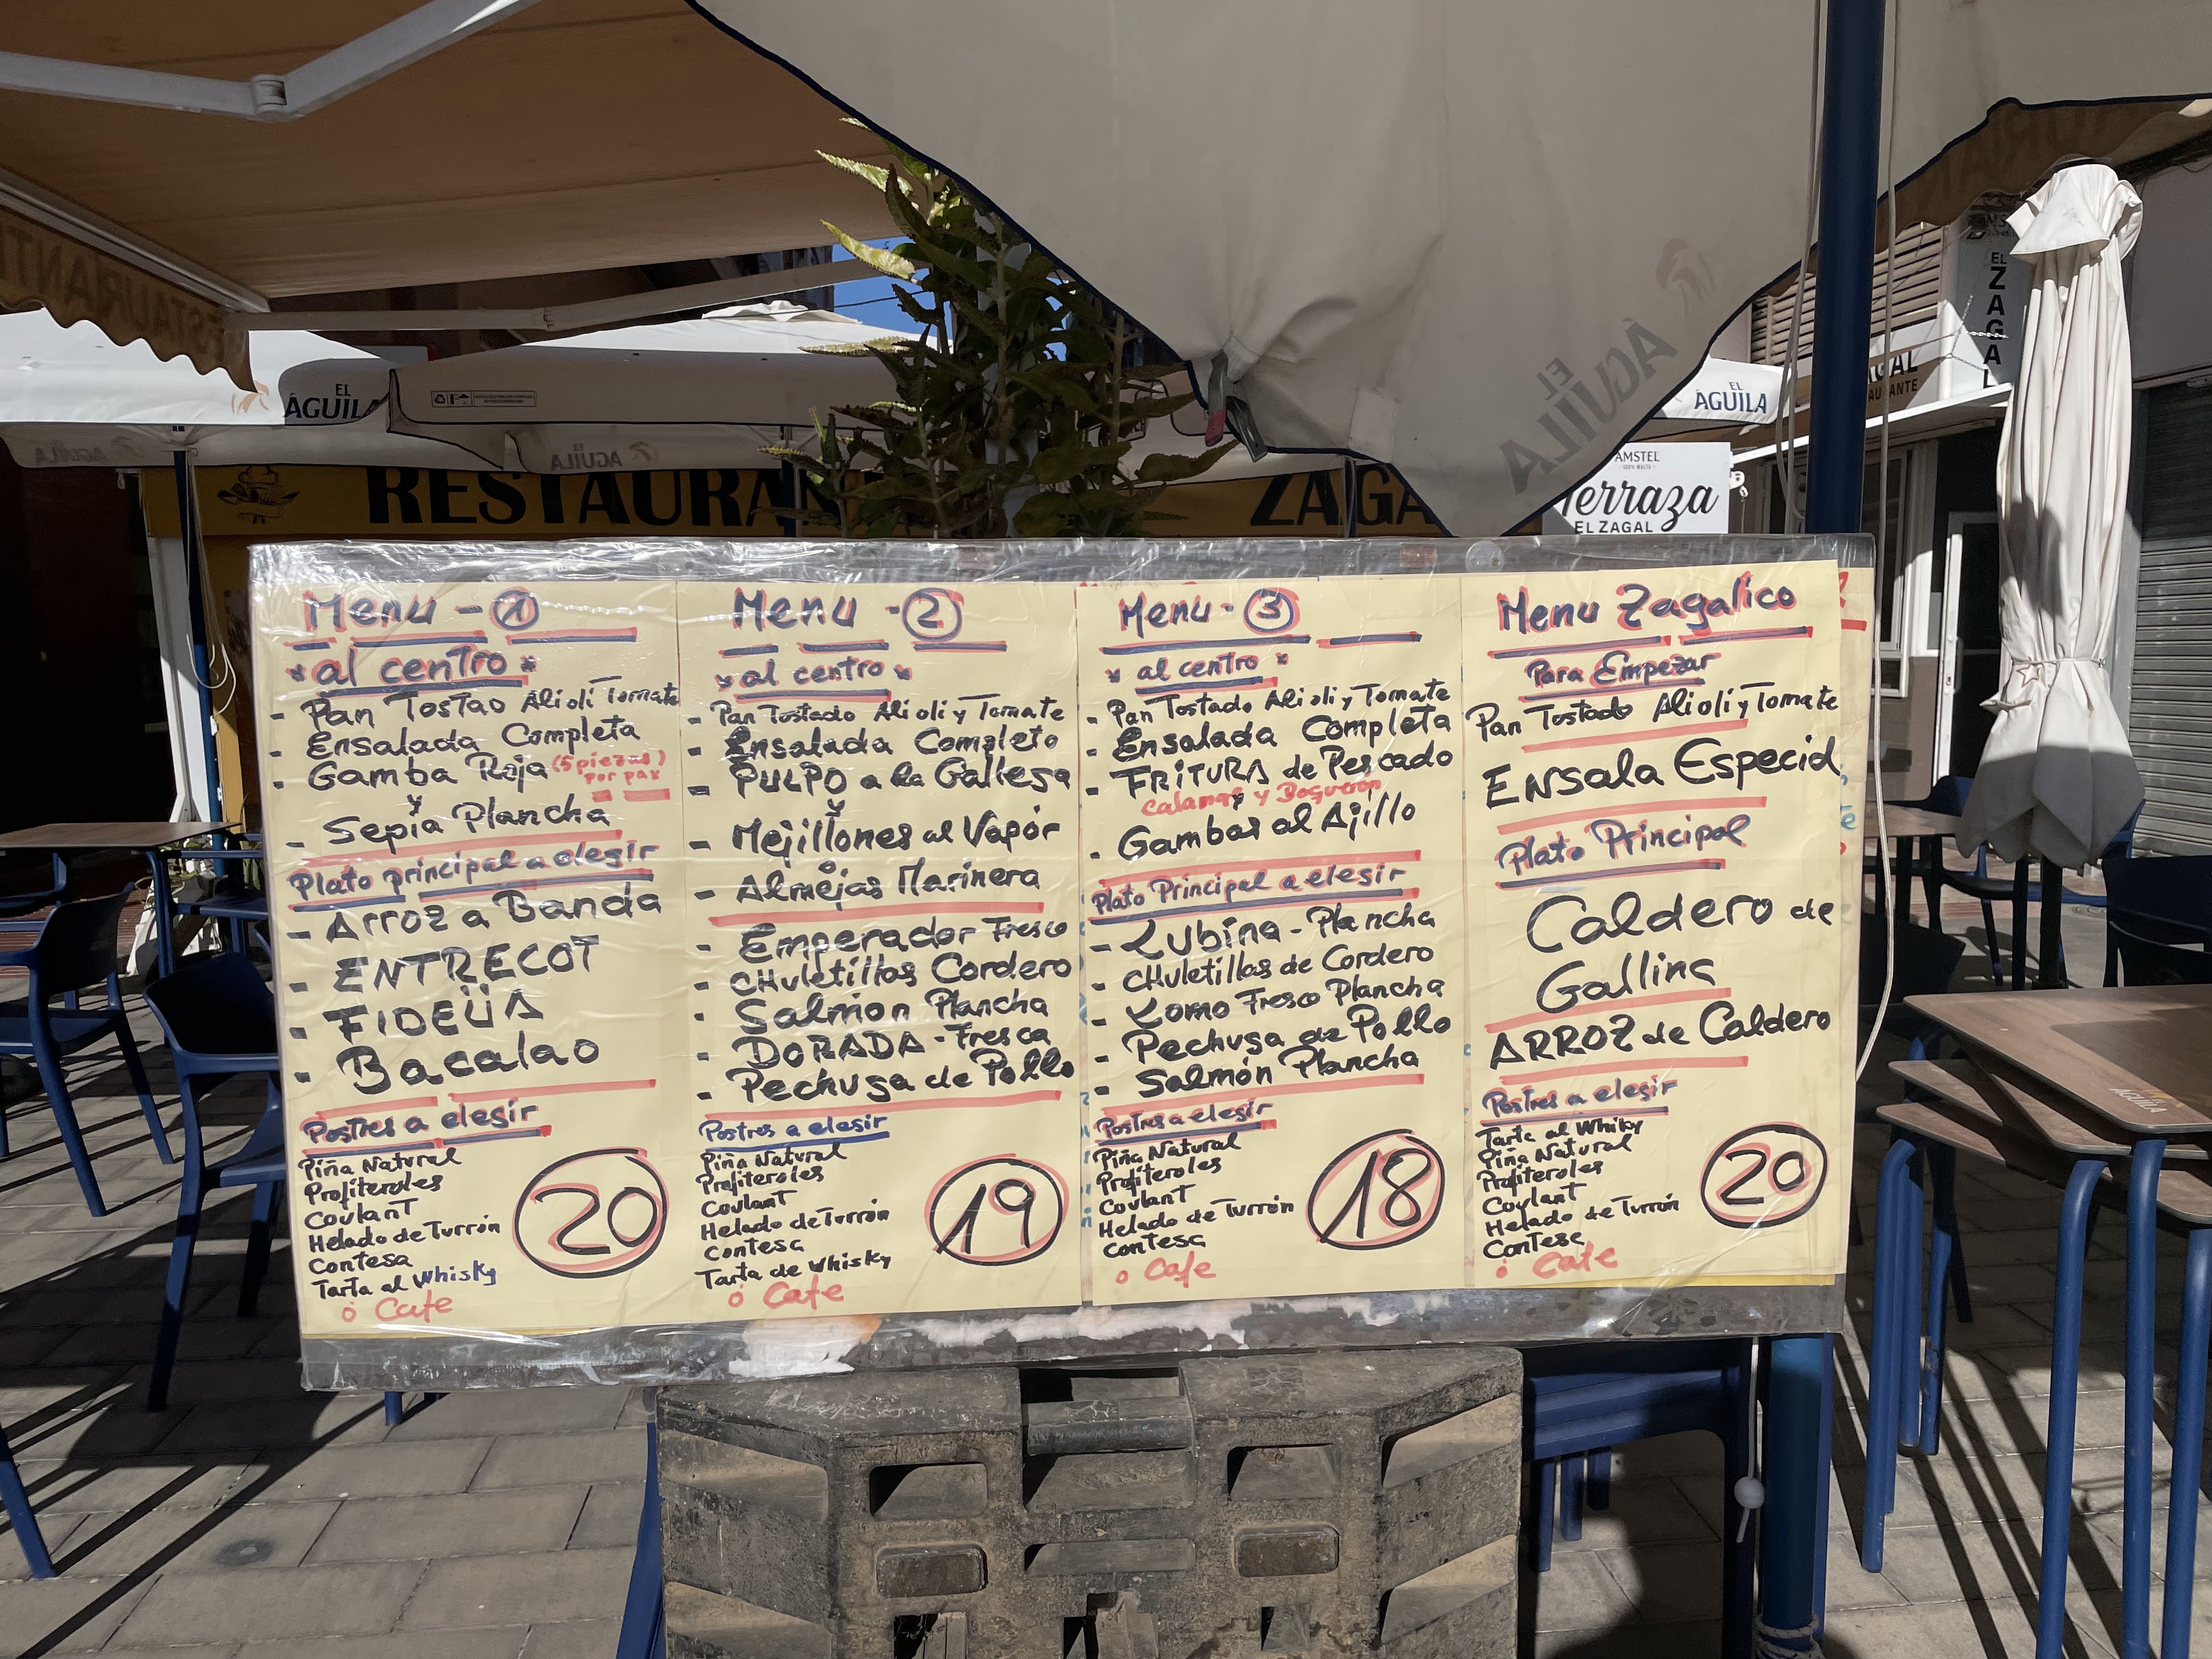 EL
ÁGUILA
EL
ÁGUILA
EL
ÁGUILA
EL
ZAGAL
RESTAURAN
ZAGA
AMSTEL
100% MALTA
Terraza
EL ZAGAL
Menu - 1
* al centro *
- Pan Tostao Ali oli Tomate
- Ensalada Completa
- Gamba Roja (5 piezas)
por pax
y
- Sepia Plancha
Plato principal a elegir
- Arroz a Banda
- ENTRECOT
- FIDEÜA
- Bacalao
Postres a elegir
Piña Natural
Profiteroles
Coulant
Helado de Turrón
Contesa
Tarta al Whisky
ó Cafe
20
Menu - 2
* al centro *
- Pan Tostado Ali oli y Tomate
- Ensalada Completa
- PULPO a la Gallega
y
- Mejillones al Vapor
o
- Almejas Marinera
- Emperador Fresco
- CHuletillas Cordero
- Salmon Plancha
- DORADA - Fresca
- Pechuga de Pollo
Postres a elegir
Piña Natural
Profiteroles
Coulant
Helado de Turrón
Contesa
Tarta de Whisky
ó Cafe
19
Menu - 3
* al centro *
- Pan Tostado Ali oli y Tomate
- Ensalada Completa
- FRITURA de Pescado
Calamar y Boquerón
y
- Gambas al Ajillo
Plato Principal a elegir
- Lubina - Plancha
- CHuletillas de Cordero
- Lomo Fresco Plancha
- Pechuga de Pollo
- Salmón Plancha
Postres a elegir
Piña Natural
Profiteroles
Coulant
Helado de Turrón
Contesa
o Cafe
18
Menu Zagalico
Para Empezar
Pan Tostado Ali oli y Tomate
ENSala Especial
Plato Principal
Caldero de
Gallina
ARROZ de Caldero
Postres a elegir
Tarta al Whiky
Piña Natural
Profiteroles
Coulant
Helado de Turrón
Contesa
o Cafe
20